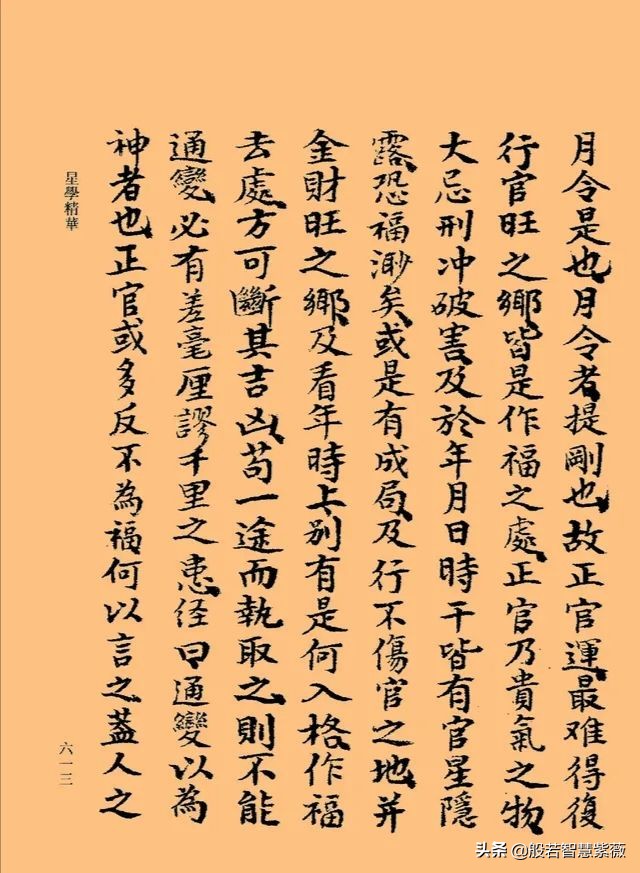 月令是也月令者提剛也故正官運最难得復
行官旺之鄉皆是作福之處正官乃貴氣之物
大忌刑冲破害及於年月日時干皆有官星隱
露恐福渺矣或是有成局及行不傷官之地并
金財旺之鄉及看年時上别有是何入格作福
去處方可斷其吉凶苟一途而執取之則不能
通變必有差毫厘謬千里之患径曰通變以為
神者也正官或多反不為福何以言之盖人之
星學精華
六一三
头条 @般若智慧紫薇